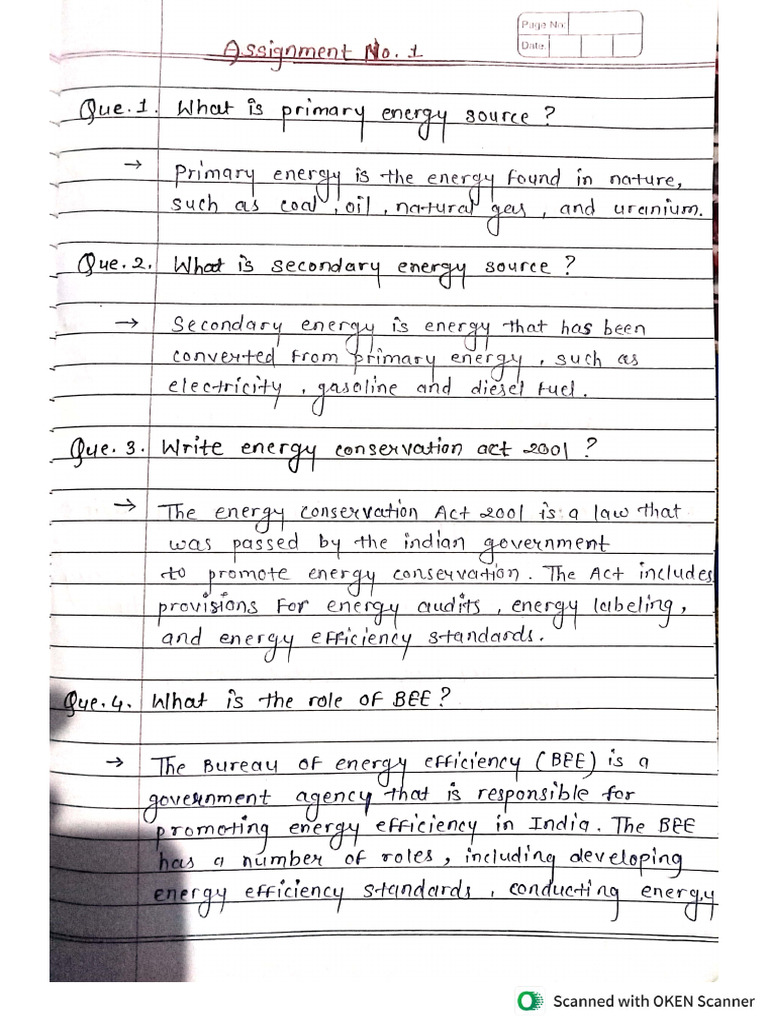 Page No:
Date:
Assignment No. 1
Que. 1. What is primary energy source ?
→ Primary energy is the energy found in nature,
such as coal, oil, natural gas, and uranium.
Que. 2. What is secondary energy source ?
→ Secondary energy is energy that has been
converted from primary energy, such as
electricity, gasoline and diesel fuel.
Que. 3. Write energy conservation act 2001 ?
→ The energy conservation Act 2001 is a law that
was passed by the indian government
to promote energy conservation. The Act includes
provisions for energy audits, energy labeling,
and energy efficiency standards.
Que. 4. What is the role of BEE ?
→ The Bureau of energy efficiency (BEE) is a
government agency that is responsible for
promoting energy efficiency in India. The BEE
has a number of roles, including developing
energy efficiency standards, conducting energy
Scanned with OKEN Scanner